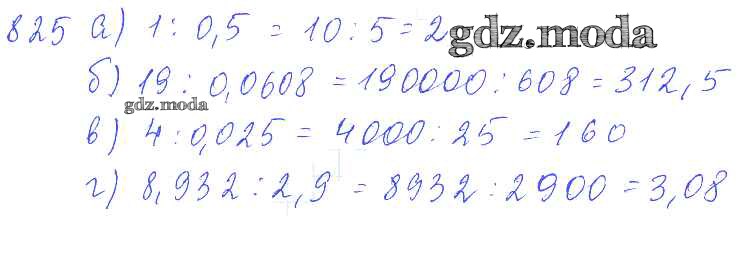 825 а) 1 : 0,5 = 10 : 5 = 2 gdz.moda
б) 19 : 0,0608 = 190000 : 608 = 312,5
gdz.moda
в) 4 : 0,025 = 4000 : 25 = 160
г) 8,932 : 2,9 = 8932 : 2900 = 3,08